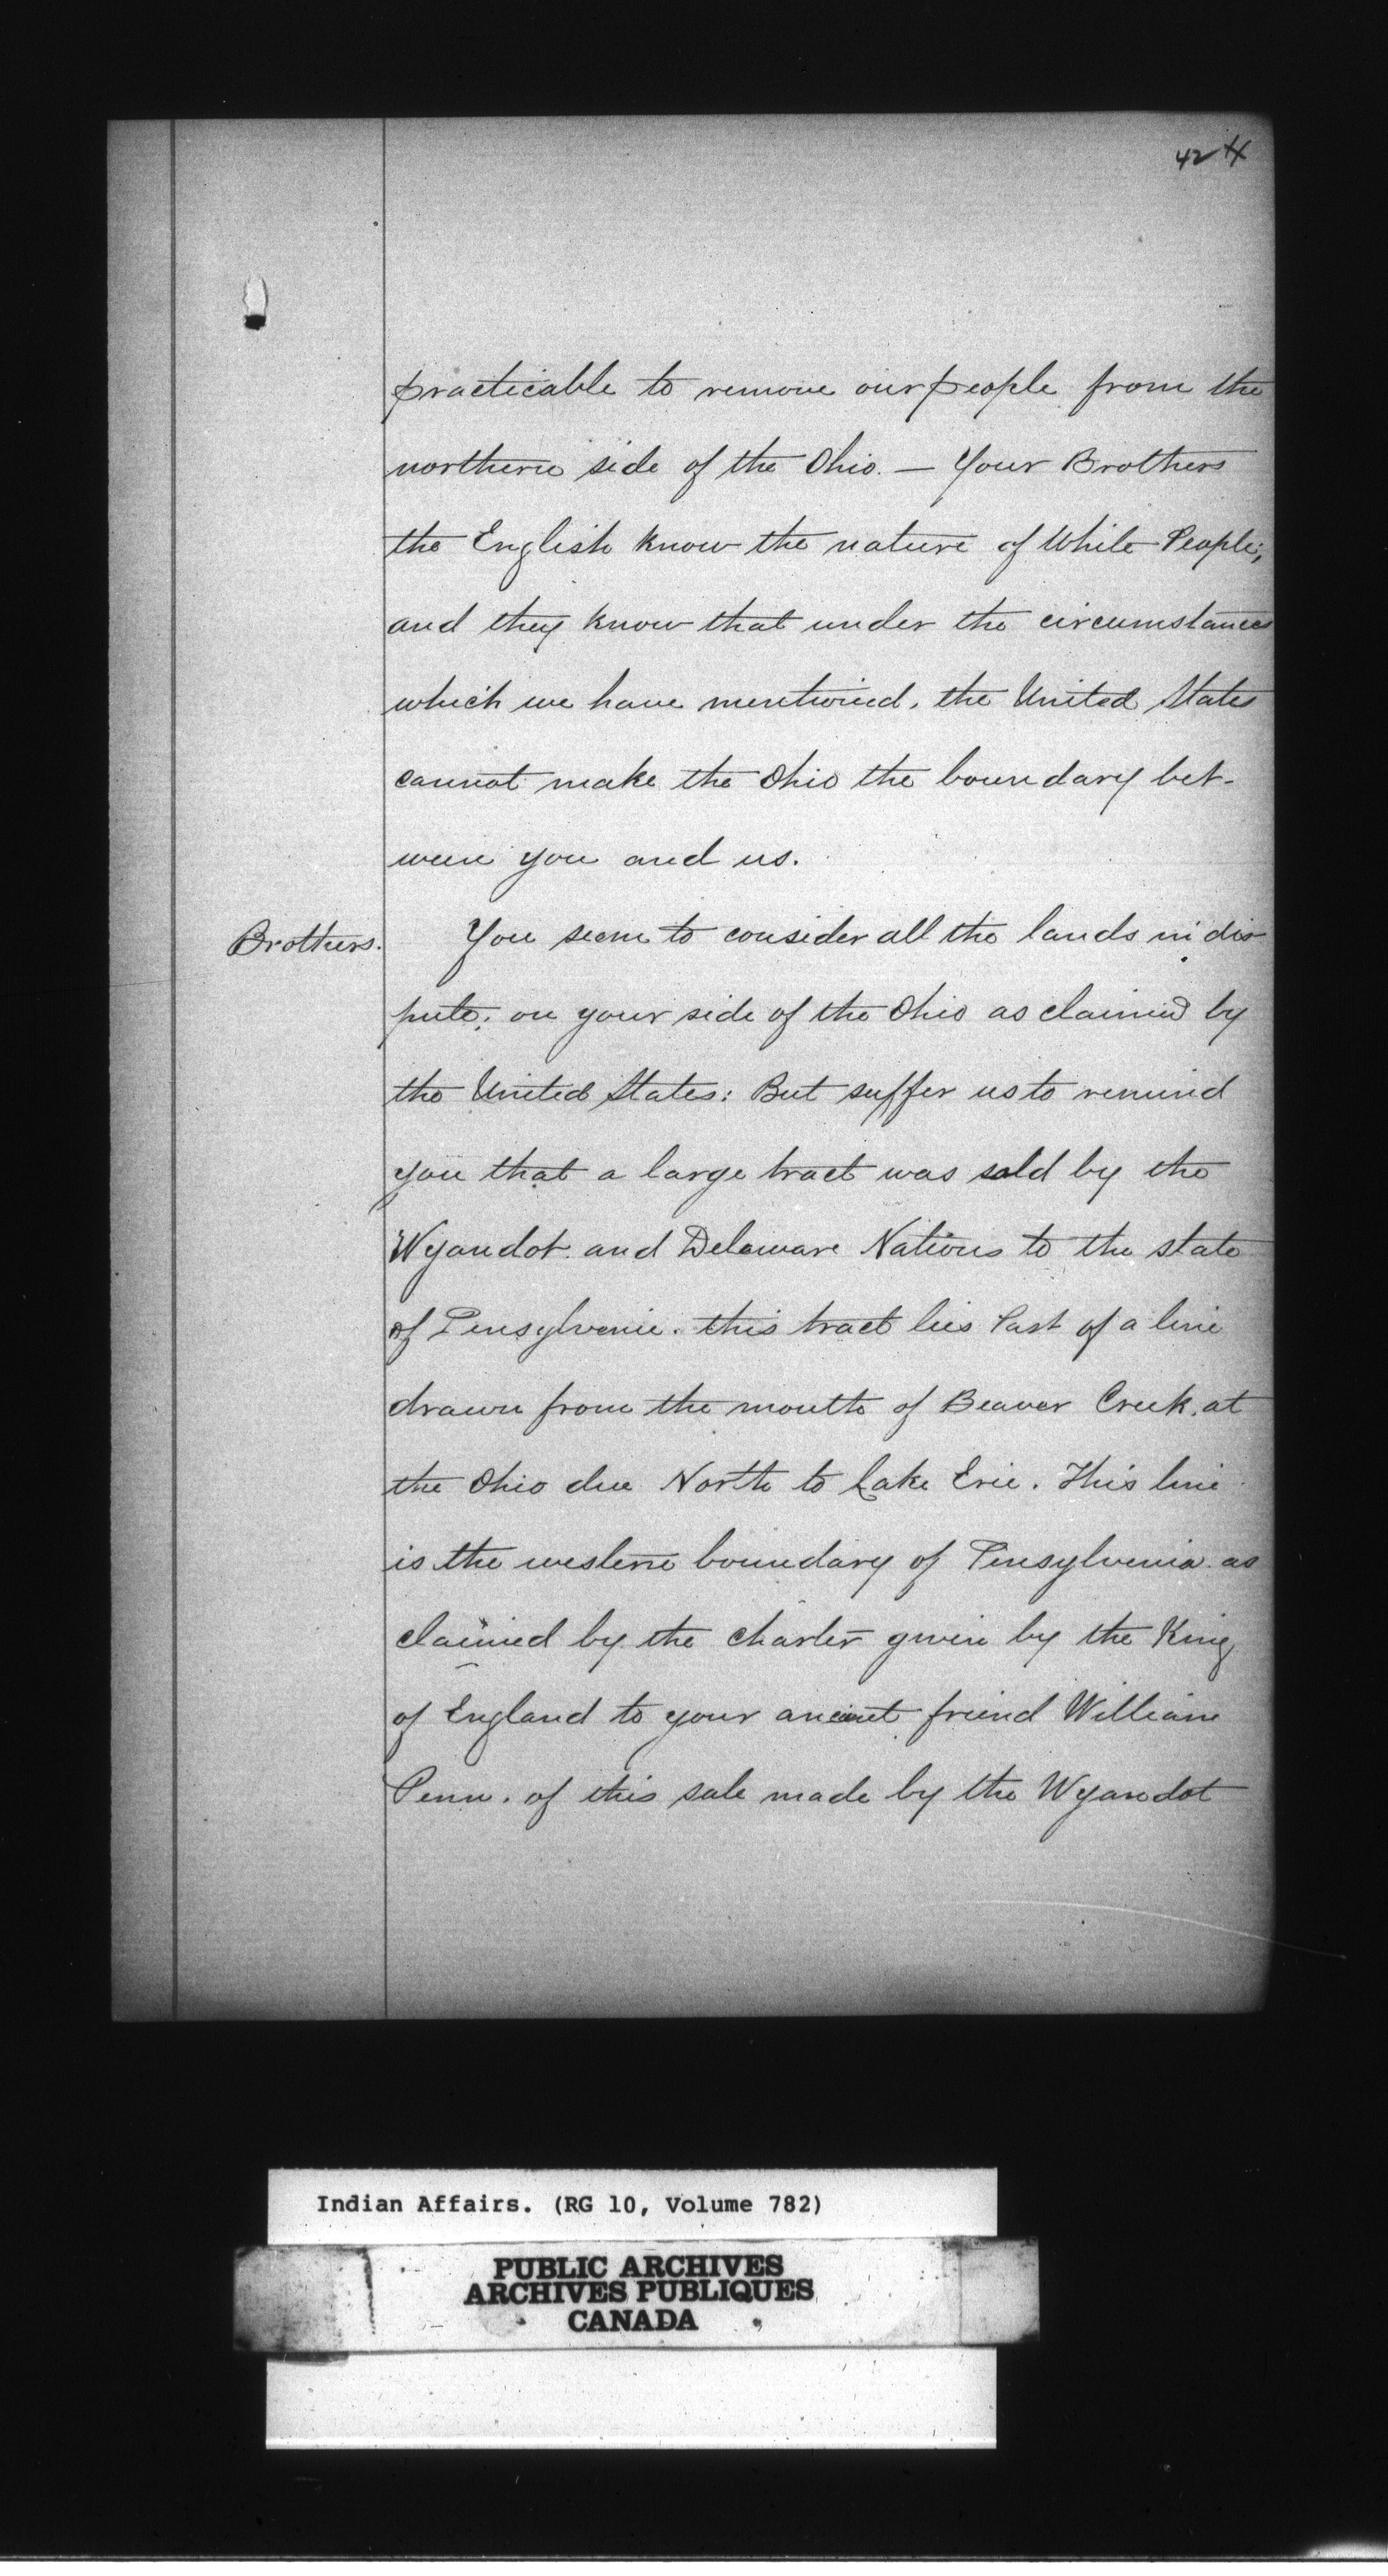 424
practicable to remove our people from the
northern side of the Ohio. — Your Brothers
the English know the nature of White People;
and they know that under the circumstances
which we have mentioned, the United States
cannot make the Ohio the boundary bet-
ween you and us.
Brothers. You seem to consider all the lands in dis
pute; on your side of the Ohio as claimed by
the United States: But suffer us to remind
you that a large tract was sold by the
Wyandot and Delaware Nations to the state
of Pensylvenia. this tract lies East of a line
drawn from the mouth of Beaver Creek, at
the Ohio due North to Lake Erie. This line
is the western boundary of Pensylvenia as
claimed by the charter given by the King
of England to your ancient friend William
Penn. of this sale made by the Wyandot
Indian Affairs. (RG 10, Volume 782)
PUBLIC ARCHIVES
ARCHIVES PUBLIQUES
CANADA